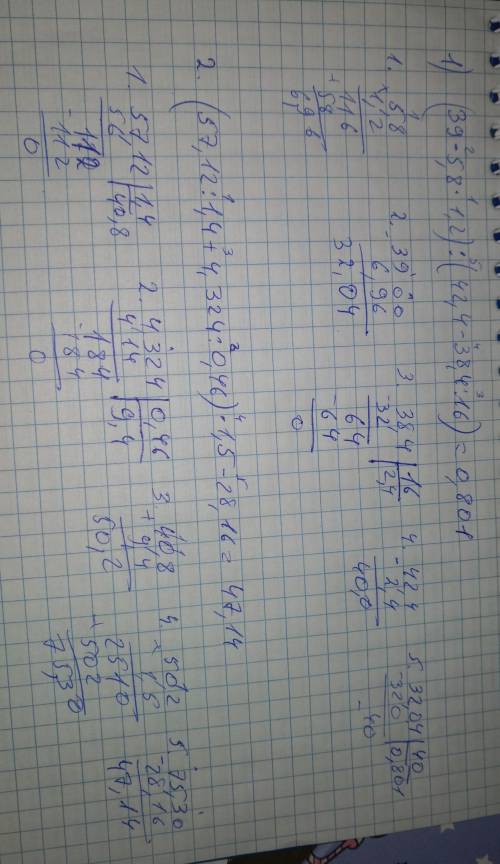 1) (39-5,8·1,2):(42,4-38,4:16)=0,801
1. 5,8
× 1,2
116
+ 58
6,96
2. 39,00
- 6,96
32,04
3. 38,4 | 16
- 32 | 2,4
64
- 64
0
4. 42,4
- 2,4
40,0
5. 3204 | 40
320 | 0,801
- 40
2. (57,12:1,4+4,324:0,46)·1,5-28,16=47,14
1. 57,12 | 1,4
56 | 40,8
112
- 112
0
2. 4,324 | 0,46
4,14 | 9,4
184
- 184
0
3. 40,8
+ 9,4
50,2
4. 50,2
× 1,5
2510
+ 502
75,30
5. 75,30
- 28,16
47,14